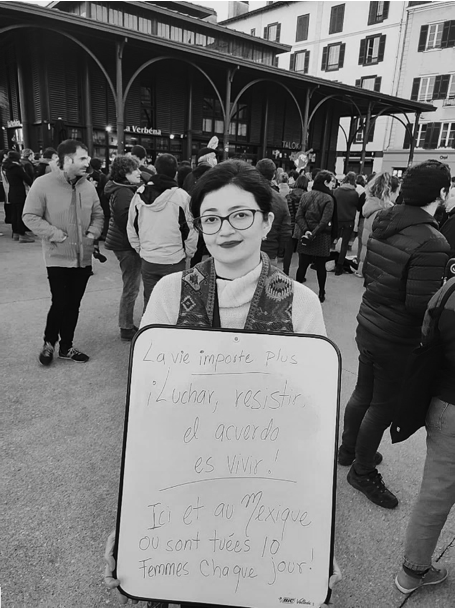 La Verbéna
TALOK
La vie importe Plus
¡Luchar, resistir,
el acuerdo
es vivir!
Ici et au Mexique
ou sont tuées 10
Femmes chaque jour!